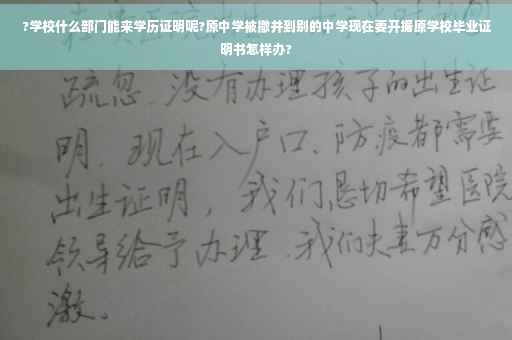 ?学校什么部门能来学历证明呢?原中学被撤并到别的中学现在要开据原学校毕业证
明书怎样办?
疏忽.没有办理孩子的出生证
明.现在入户口、防疫都需要
出生证明，我们恳切希望医院
领导给予办理.我们夫妻万分感
激。